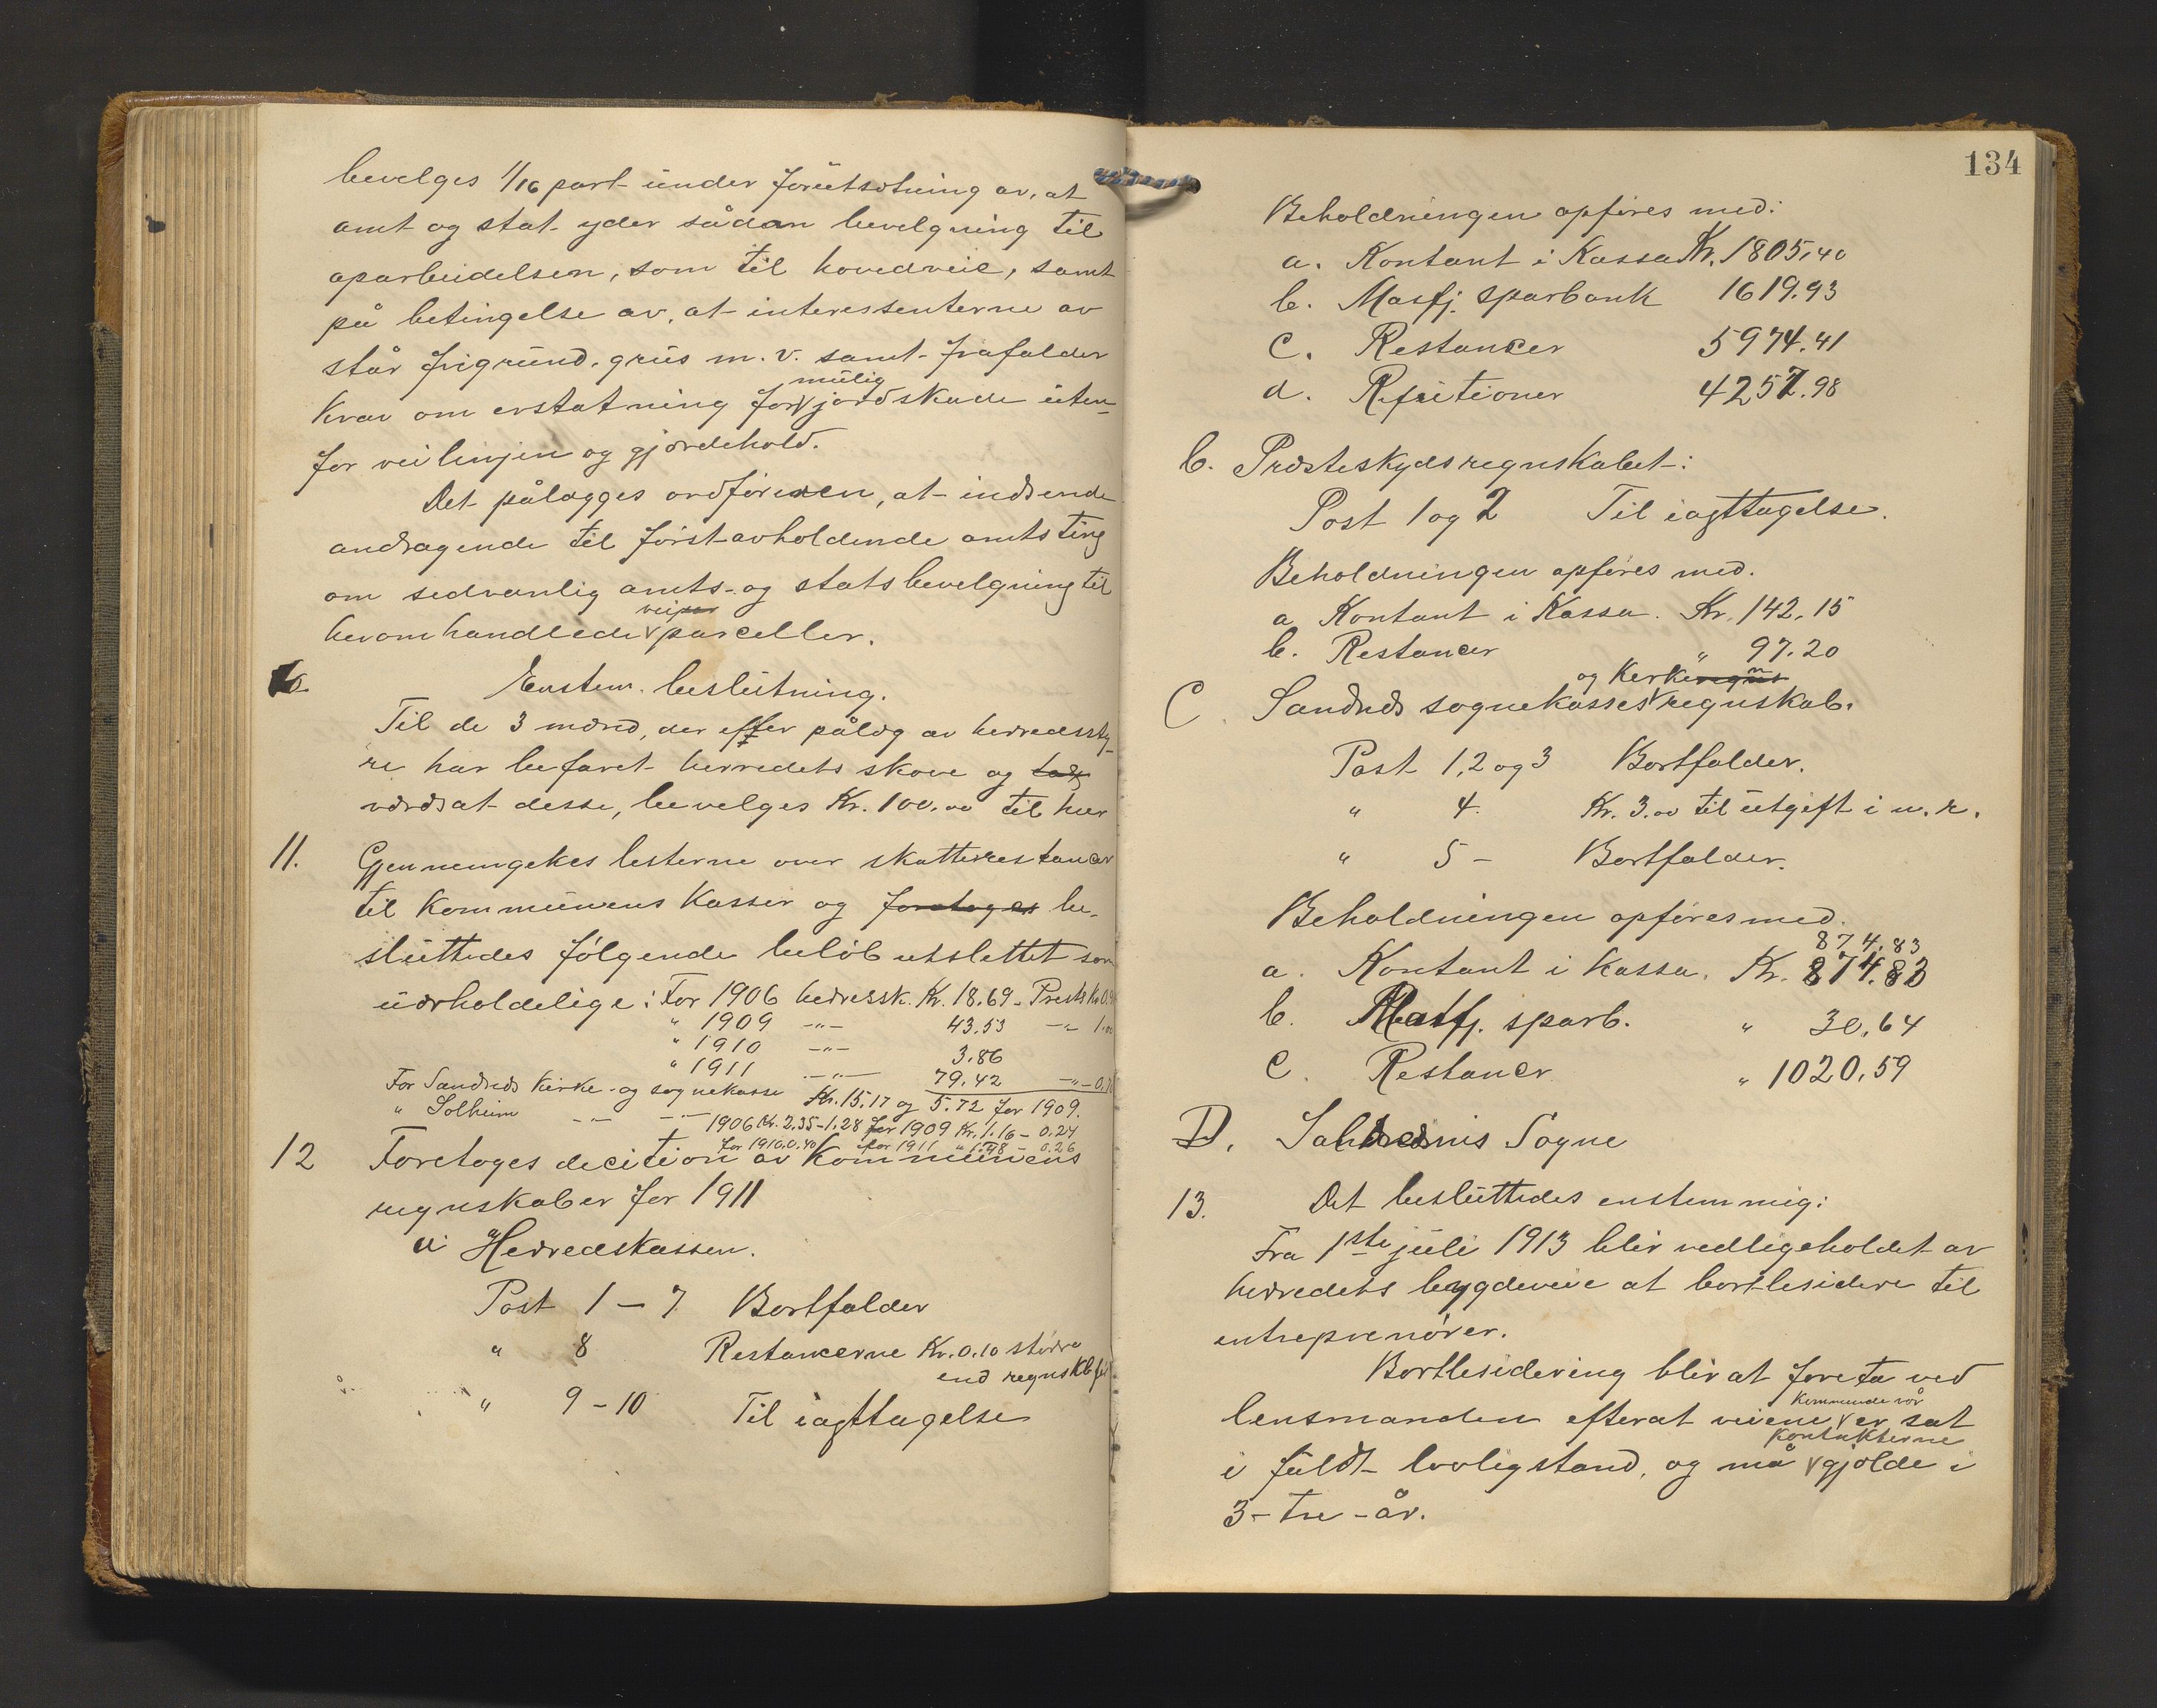 bevelges 1/16 part under forutsætning av, at
amt og stat yder sådan bevelgning til
oparbeidelsen, som til hovedveie, samt
på betingelse av, at interessenterne av
står frigrund, grus m. v. samt frafalder
krav om erstatning for mulig jordskade uten-
for veilinjen og gjærdehold.
Det pålægges ordføreren, at indsende
andragende til først avholdende amtsting
om sedvanlig amts- og statsbevelgning til
heromhandlede vei parceller.
10. Enstem. beslutning.
Til de 3 mænd, der efter pålæg av herredssty-
re har befaret herredets skove og
værdsat desse, bevelges Kr. 100.00 til hver
11. Gjennemgekes listerne over skatterestancer
til kommunens kasser og foretoges be-
sluttedes følgende beløb utslettet som
uerholdelige: For 1906 herredsk. Kr. 18.69 - Prestsk Kr 0.
" 1909 -"- 43.53 -"- 1.00
" 1910 -"- 3.86
" 1911 -"- 79.42 -"- 0.
For Sandnes kirke- og sognekasse Kr. 15.17 og 5.72 for 1909.
" Solheim -"- -"- 1906 Kr. 2.35 - 1.28 for 1909 Kr. 1.16 - 0.24
for 1910 0.40 for 1911 " 1.48 - 0.26
12 Foretoges decition av kommunens
regnskaber for 1911
a Herredskassen.
Post 1 - 7 Bortfalder
" 8 Restancerne Kr. 0.10 større
end regnskb.
" 9 - 10 Til iagttagelse
134
Beholdningen opføres med:
a. Kontant i Kassa Kr. 1805,40
b. Masfj. sparbank 1619.93
c. Restancer 5974.41
d. Repitioner 4257.98
b. Præsteskydsregnskabet:
Post 1 og 2 Til iagttagelse.
Beholdningen opføres med.
a Kontant i Kassa. Kr. 142,15
b. Restancer " 97.20
og Kirke
C. Sandnes sognekasses regnskab.
Post 1, 2 og 3 Bortfalder.
" 4. Kr. 3.00 til utgift i n. r.
" 5 - Bortfalder.
Beholdningen opføres med.
874.83
a. Kontant i kassa. Kr. 874.83
b. Masfj. sparb. " 30,64
c. Restancr " 1020,59
D. Solheims Sogne
13. Det besluttedes enstemmig:
Fra 1ste juli 1913 blir vedligeholdet av
herredets bygdeveie at bortlisidere til
entreprenører.
Bortlesidering blir at foreta ved
kommende vår
lensmanden efterat veiene er sat
kontrakterne
i fuldt lovlig stand, og må gjælde i
3 - tre - år.